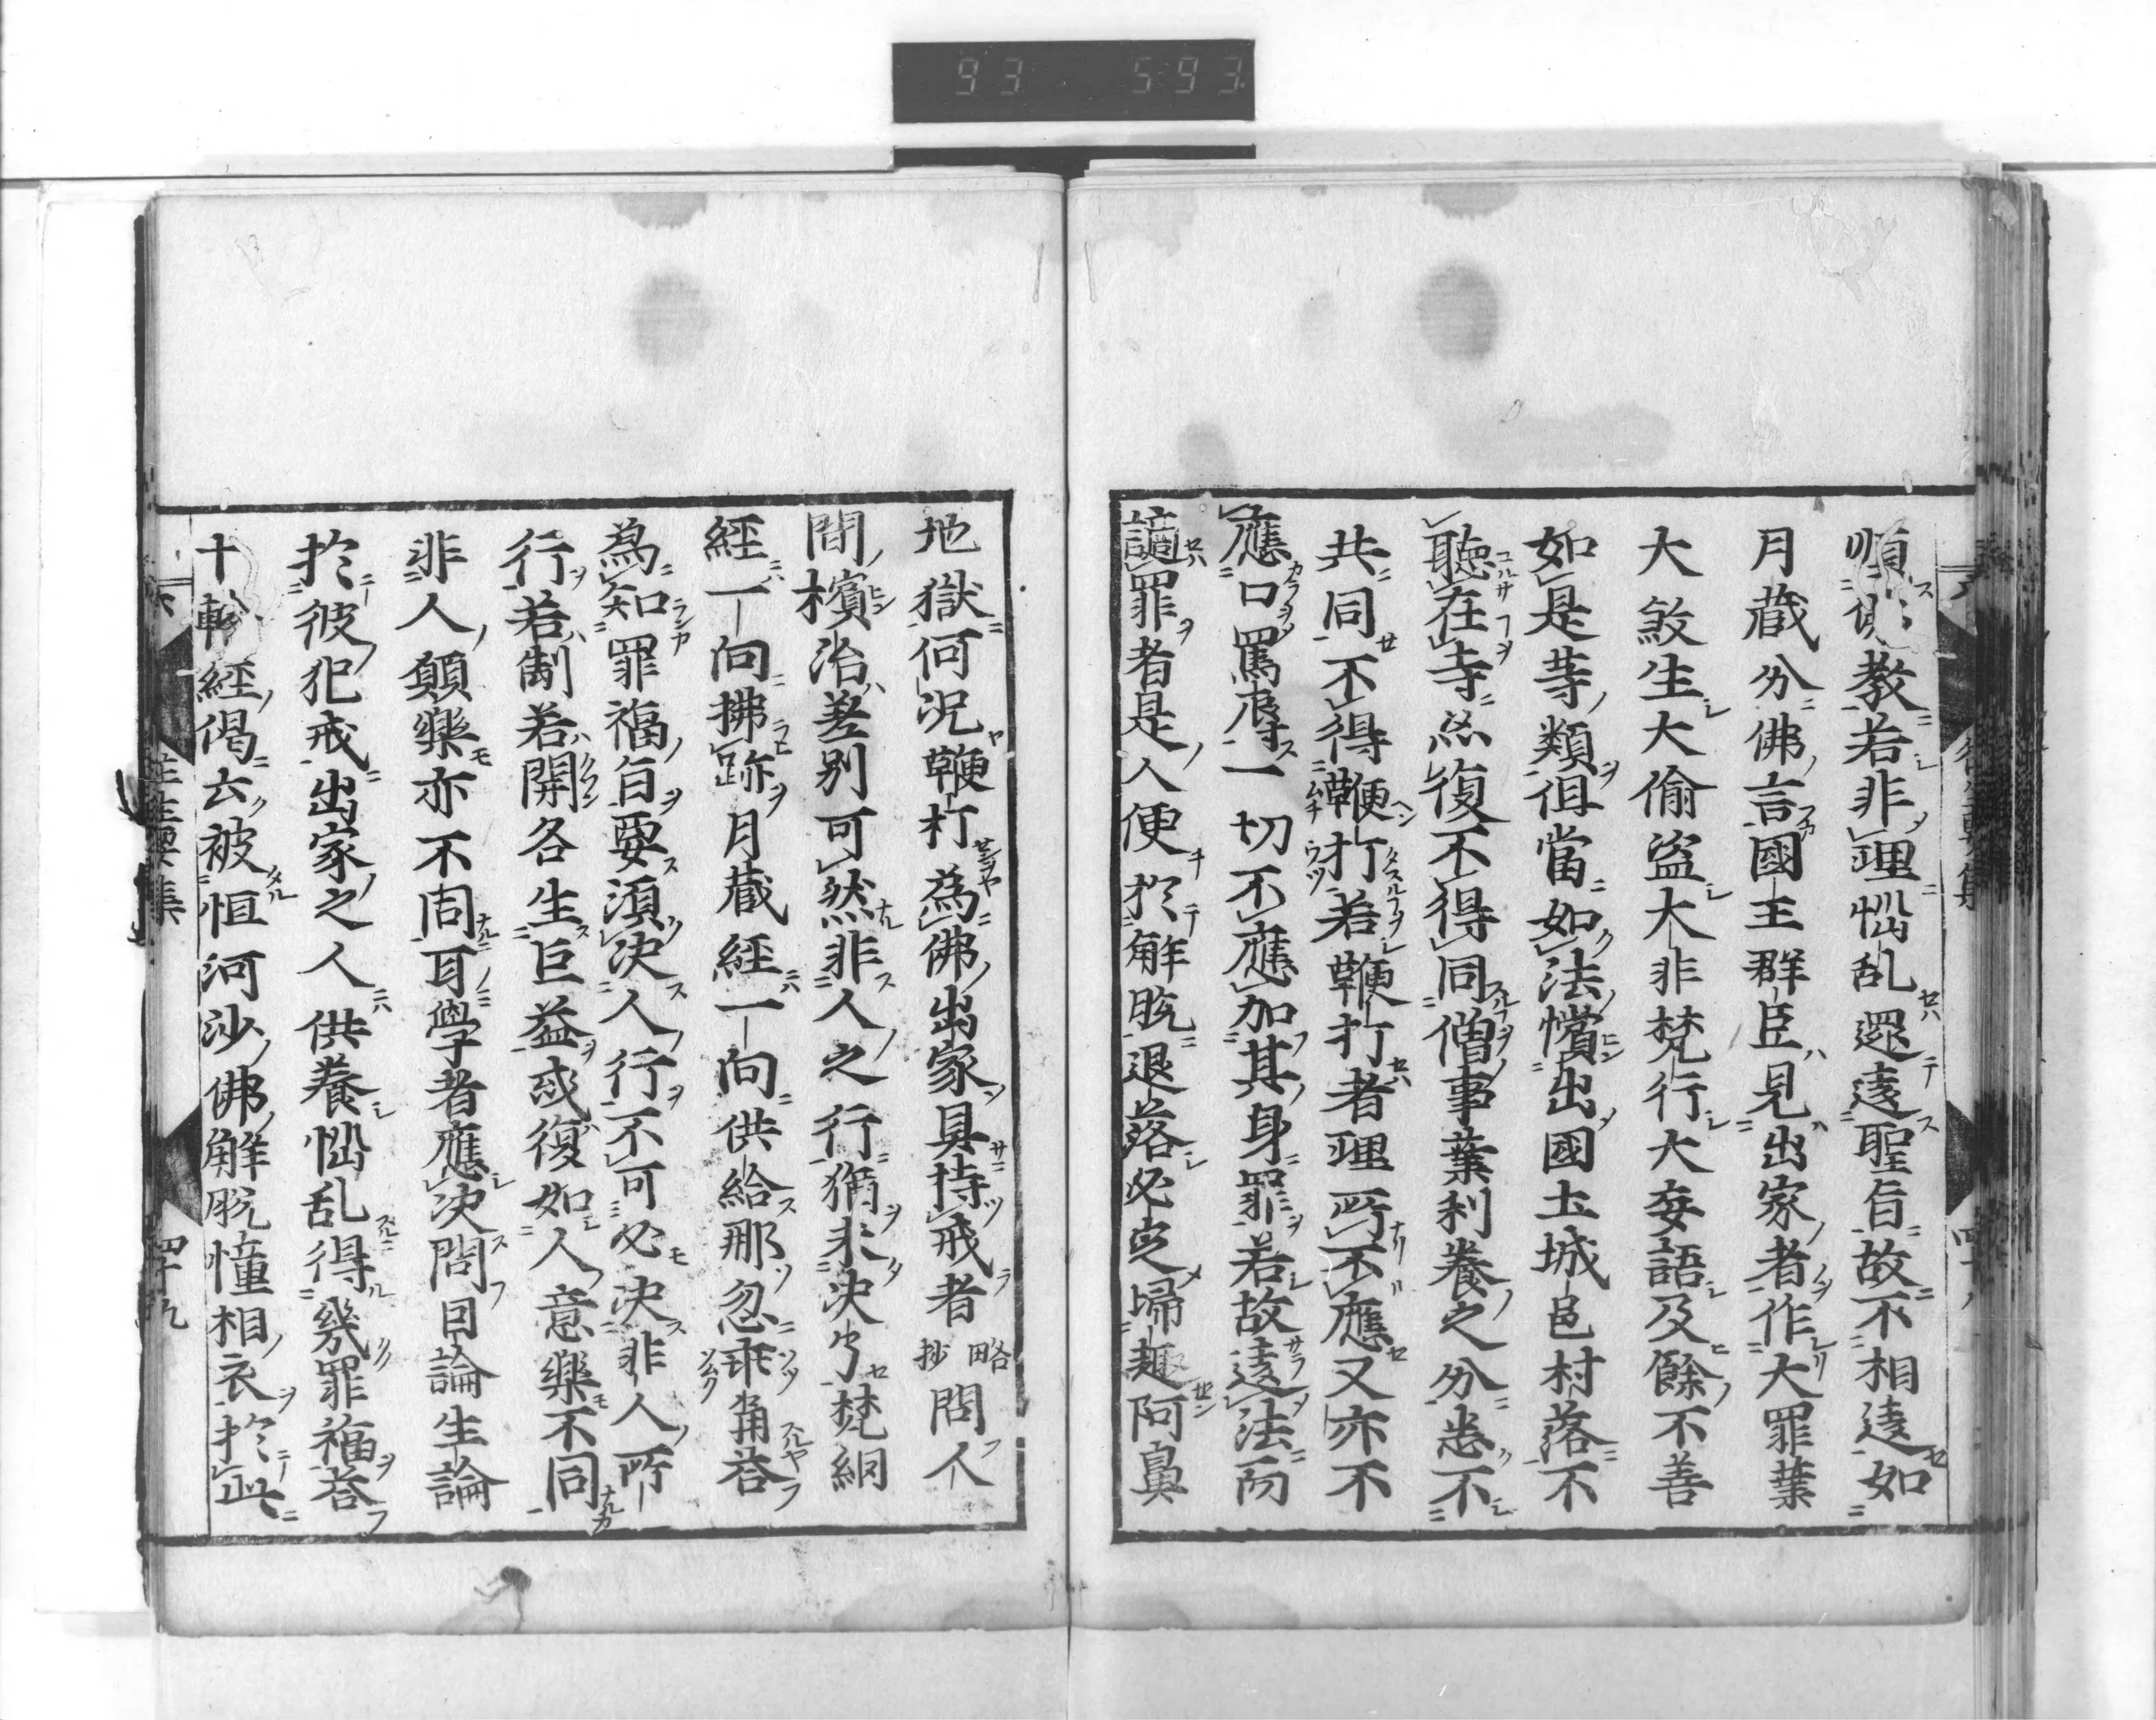 93 593
順佛教若非理惱乱還違聖旨故不相違如
月蔵分佛言國王群臣見出家者作大罪業
大煞生大偷盗大非梵行大妄語及餘不善
如是等類但當如法擯出國土城邑村落不
聽在寺亦復不得同僧事業利養之分悉不
共同不得鞭打若鞭打者理所不應又亦不
應口罵辱一切不應加其身罪若故違法而
謫罪者是人便於解脱退落必定歸趣阿鼻
地獄何况鞭打為佛出家具持戒者略抄問人
間擯治差別可然非人之行猶未决了梵網
經一向拂跡月蔵經一向供給那忽乖角荅
為知罪福旨要須决人行不可必决非人所
行若制若開各生巨益或復如人意樂不同
非人願樂亦不同耳學者應决問因論生論
於彼犯戒出家之人供養惱乱得幾罪福荅
十輪經偈云被恒河沙佛解脱幢相衣於此
往生要集
四十九